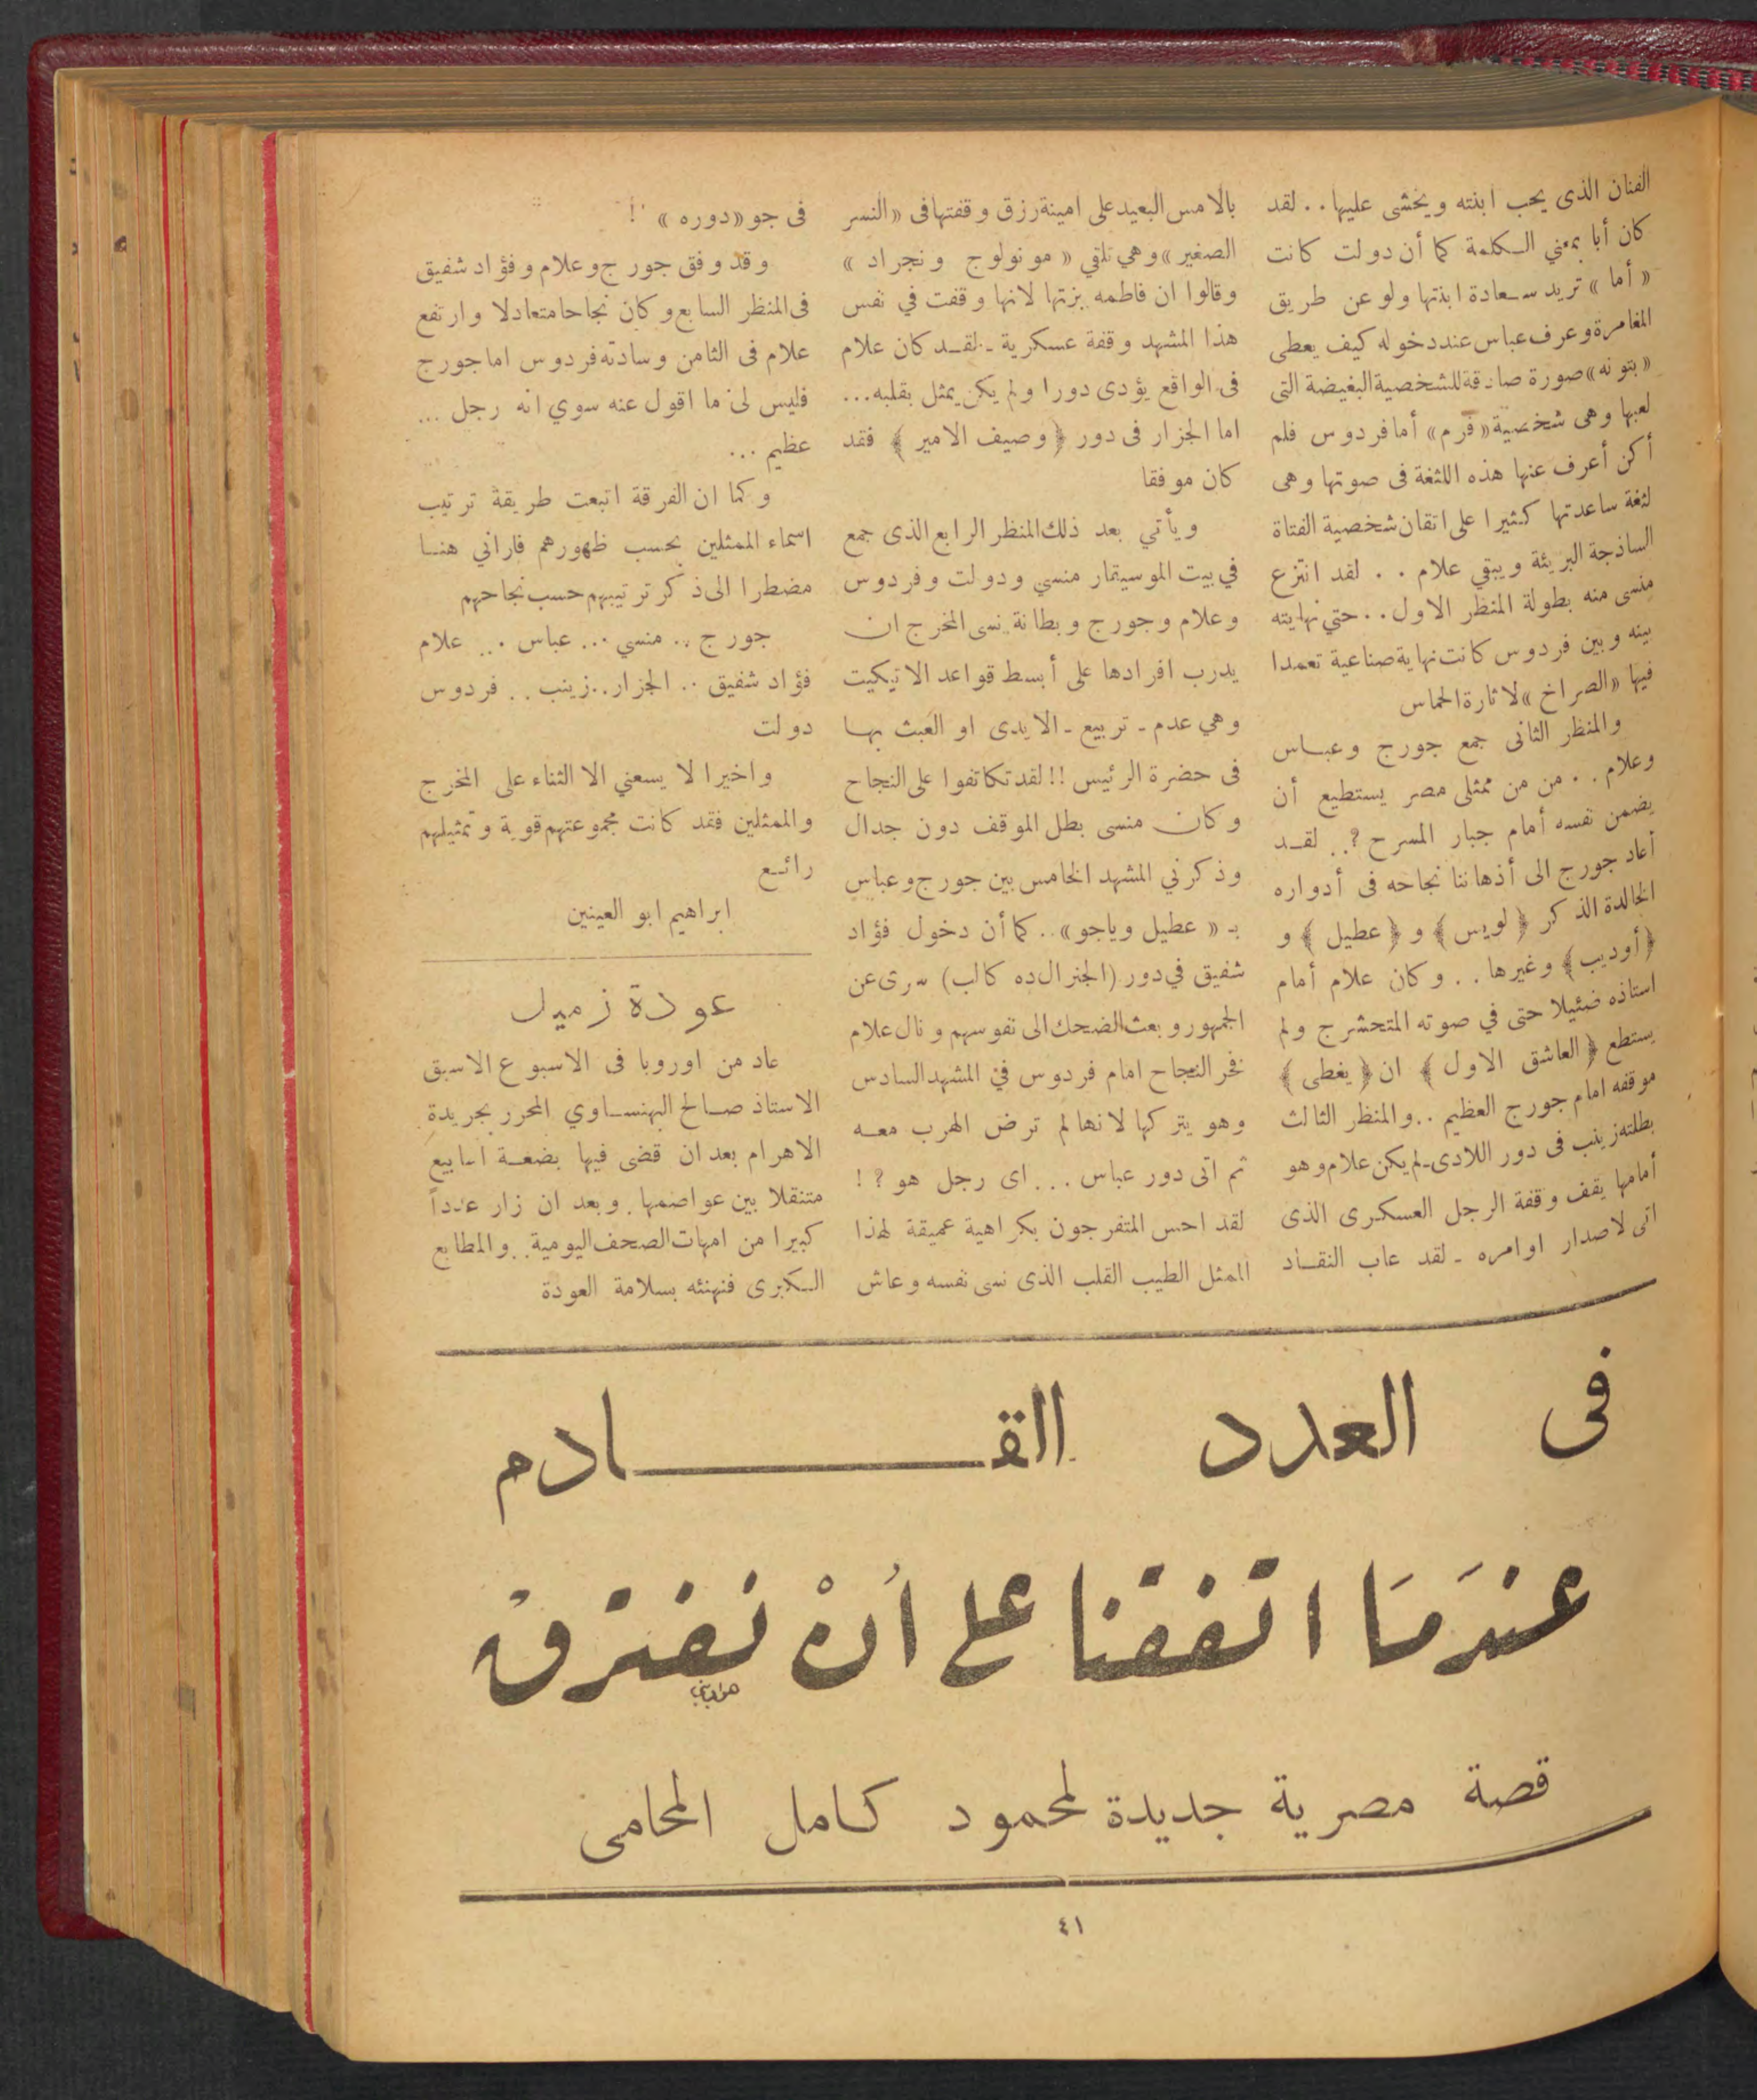 الفنان الذى يحب ابنته ويخشى عليها . . لقد
كان أبا بمعني الكلمة كما أن دولت كانت
« أما » تريد سعادة ابنتها ولو عن طريق
المغامرة وعرف عباس عند دخوله كيف يعطى
« بتونه » صورة صادقة للشخصية البغيضة التى
لعبها وهى شخصية « فرم » أما فردوس فلم
أكن أعرف عنها هذه اللثغة فى صوتها وهى
لثغة ساعدتها كثيرا على اتقان شخصية الفتاة
الساذجة البريئة ويبقي علام . . لقد انتزع
منسى منه بطولة المنظر الاول . . حتي نهايته
بينه وبين فردوس كانت نهاية صناعية تعمدا
فيها « الصراخ » لاثارة الحماس
والمنظر الثانى جمع جورج وعباس
وعلام . . من من ممثلى مصر يستطيع أن
يضمن نفسه أمام جبار المسرح ? . . لقد
أعاد جورج الى أذهاننا نجاحه فى أدواره
الخالدة الذكر ﴿ لويس ﴾ و ﴿ عطيل ﴾ و
﴿ أوديب ﴾ وغيرها . . وكان علام أمام
استاذه ضئيلا حتى في صوته المتحشرج ولم
يستطع ﴿ العاشق الاول ﴾ ان ﴿ يغطى ﴾
موقفه امام جورج العظيم . . والمنظر الثالث
بطلته زينب فى دور اللادى ـ لم يكن علام وهو
أمامها يقف وقفة الرجل العسكرى الذى
اتى لاصدار اوامره ـ لقد عاب النقاد
بالامس البعيد على امينة رزق وقفتها فى « النسر
الصغير » وهي تلقي « مونولوج ونجراد »
وقالوا ان فاطمه بزتها لانها وقفت في نفس
هذا المشهد وقفة عسكرية ـ لقد كان علام
فى الواقع يؤدى دورا ولم يكن يمثل بقلبه ...
اما الجزار فى دور ﴿ وصيف الامير ﴾ فقد
كان موفقا
ويأتي بعد ذلك المنظر الرابع الذى جمع
في بيت الموسيقار منسي ودولت وفردوس
وعلام وجورج وبطانة نسى المخرج ان
يدرب افرادها على أبسط قواعد الاتيكيت
وهي عدم ـ تربيع ـ الايدى او العبث بها
فى حضرة الرئيس !! لقد تكاتفوا على النجاح
وكان منسى بطل الموقف دون جدال
وذكرني المشهد الخامس بين جورج وعباس
بـ « عطيل وياجو » . . كما أن دخول فؤاد
شفيق في دور (الجنرال ده كالب) سرى عن
الجمهور وبعث الضحك الى نفوسهم ونال علام
فخر النجاح امام فردوس في المشهد السادس
وهو يتركها لانها لم ترض الهرب معه
ثم اتى دور عباس ... اى رجل هو ? !
لقد احس المتفرجون بكراهية عميقة لهذا
الممثل الطيب القلب الذى نسى نفسه وعاش
فى جو « دوره » !
وقد وفق جورج وعلام وفؤاد شفيق
فى المنظر السابع وكان نجاحا متعادلا وارتفع
علام فى الثامن وسادته فردوس اما جورج
فليس لى ما اقول عنه سوي انه رجل ...
عظيم ...
وكما ان الفرقة اتبعت طريقة ترتيب
اسماء الممثلين بحسب ظهورهم فاراني هنا
مضطرا الى ذكر ترتيبهم حسب نجاحهم
جورج .. منسي ... عباس ... علام
فؤاد شفيق .. الجزار .. زينب .. فردوس
دولت
واخيرا لا يسعني الا الثناء على المخرج
والممثلين فقد كانت مجموعتهم قوية وتمثيلهم
رائع
ابراهيم ابو العينين
عودة زميل
عاد من اوروبا فى الاسبوع الاسبق
الاستاذ صالح البهنساوي المحرر بجريدة
الاهرام بعد ان قضى فيها بضعة اسابيع
متنقلا بين عواصمها . وبعد ان زار عدداً
كبيرا من امهات الصحف اليومية . والمطابع
الكبرى فنهنئه بسلامة العودة
فى العدد القادم
عندَمَا اتفقنا على أنْ نفترق
قصة مصرية جديدة لمحمود كامل المحامى
٤١